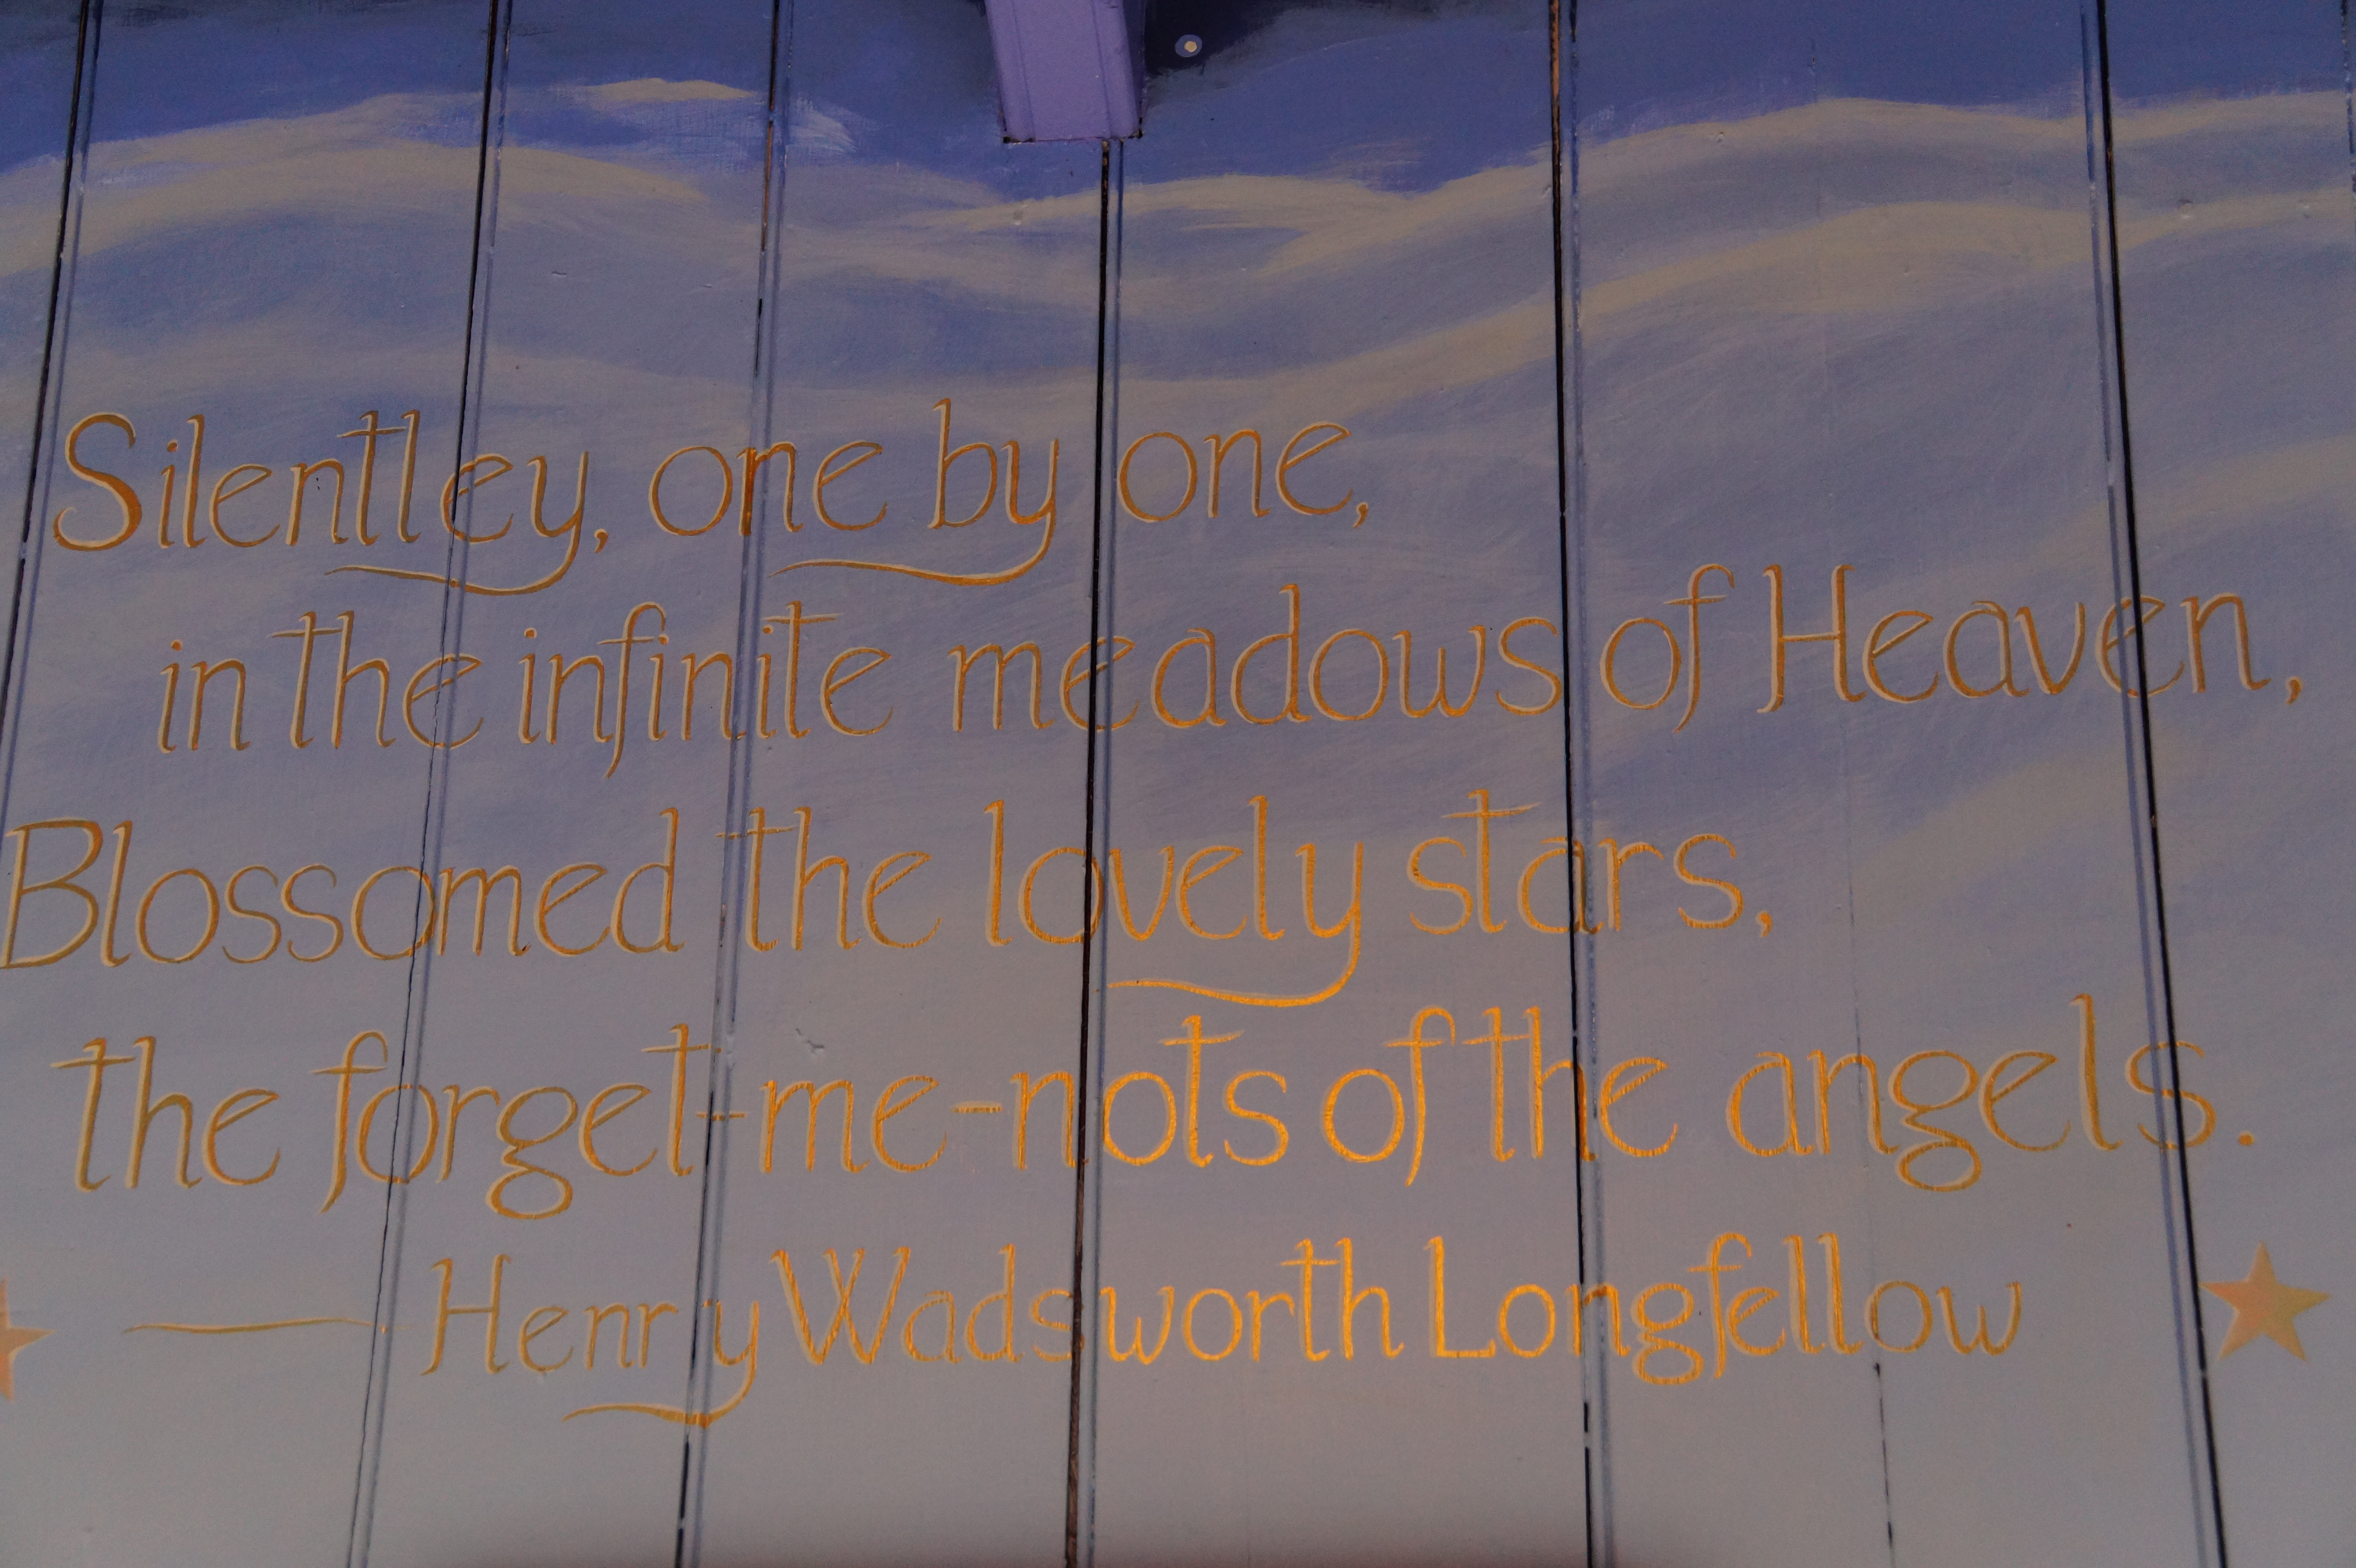 Silentley, one by one,
in the infinite meadows of Heaven,
Blossomed the lovely stars,
the forget-me-nots of the angels.
— Henry Wadsworth Longfellow